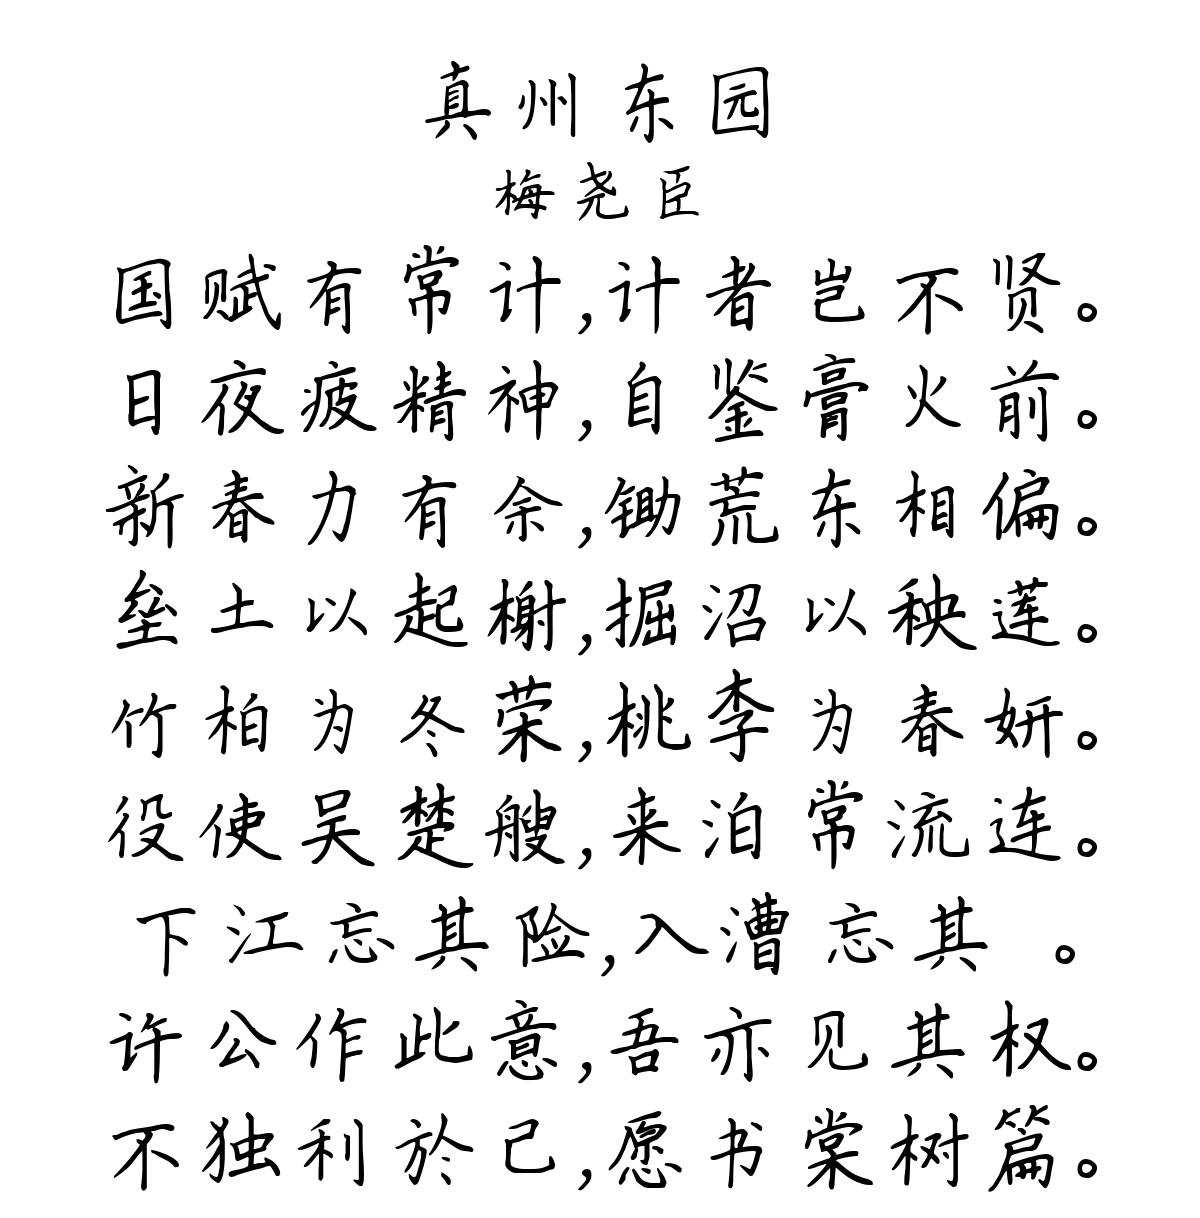 真州东园
梅尧臣
国赋有常计,计者岂不贤。
日夜疲精神,自鉴膏火前。
新春力有余,锄荒东相偏。
垒土以起榭,掘沼以秧莲。
竹柏为冬荣,桃李为春妍。
役使吴楚艘,来泊常流连。
下江忘其险,入漕忘其 。
许公作此意,吾亦见其权。
不独利於己,愿书棠树篇。